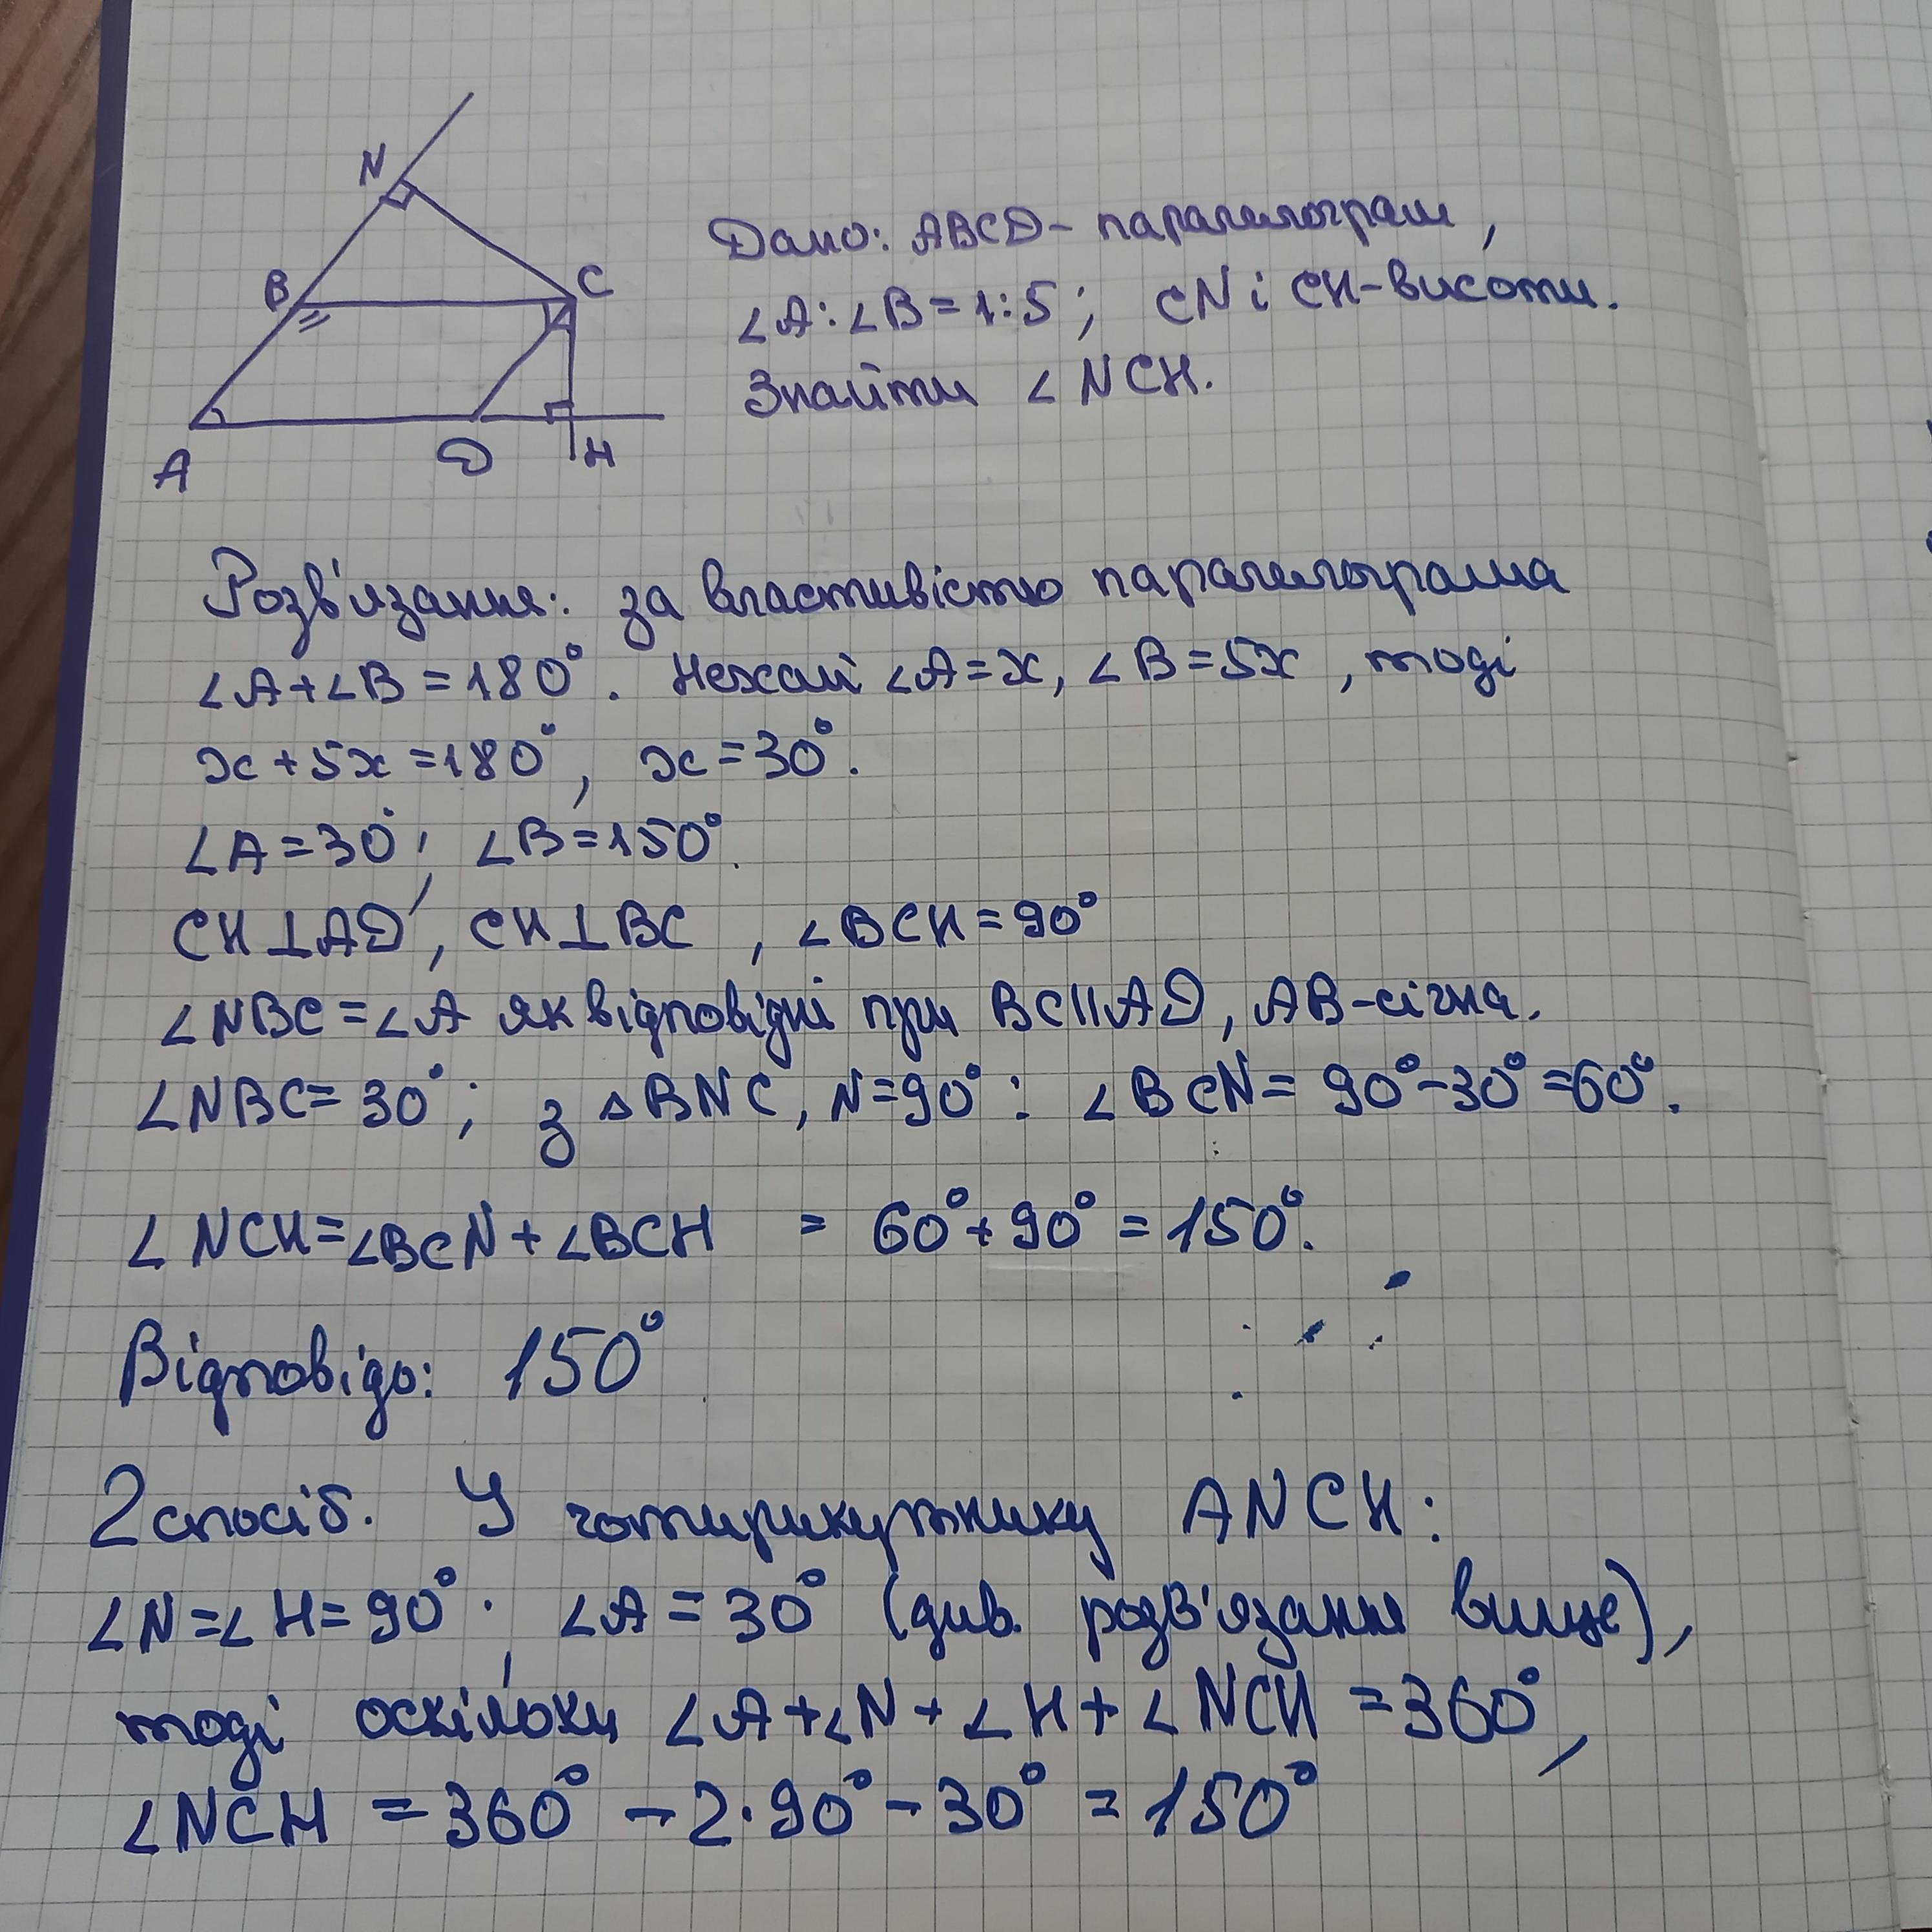 N
B
C
A
D
H
Дано: ABCD - паралелограм,
∠A:∠B=1:5; CN і CH-висоти.
Знайти ∠NCH.
Розв'язання: за властивістю паралелограма
∠A+∠B=180°. Нехай ∠A=x, ∠B=5x, тоді
x+5x=180°, x=30°.
∠A=30°; ∠B=150°.
CH⊥AD, CH⊥BC, ∠BCH=90°
∠NBC=∠A як відповідні при BC||AD, AB-січна.
∠NBC=30°; з △BNC, N=90°: ∠BCN=90°-30°=60°.
∠NCH=∠BCN+∠BCH = 60°+90°=150°.
Відповідь: 150°
2 спосіб. У чотирикутнику ANCH:
∠N=∠H=90°; ∠A=30° (див. розв'язання вище),
тоді оскільки ∠A+∠N+∠H+∠NCH=360°,
∠NCH=360°-2·90°-30°=150°